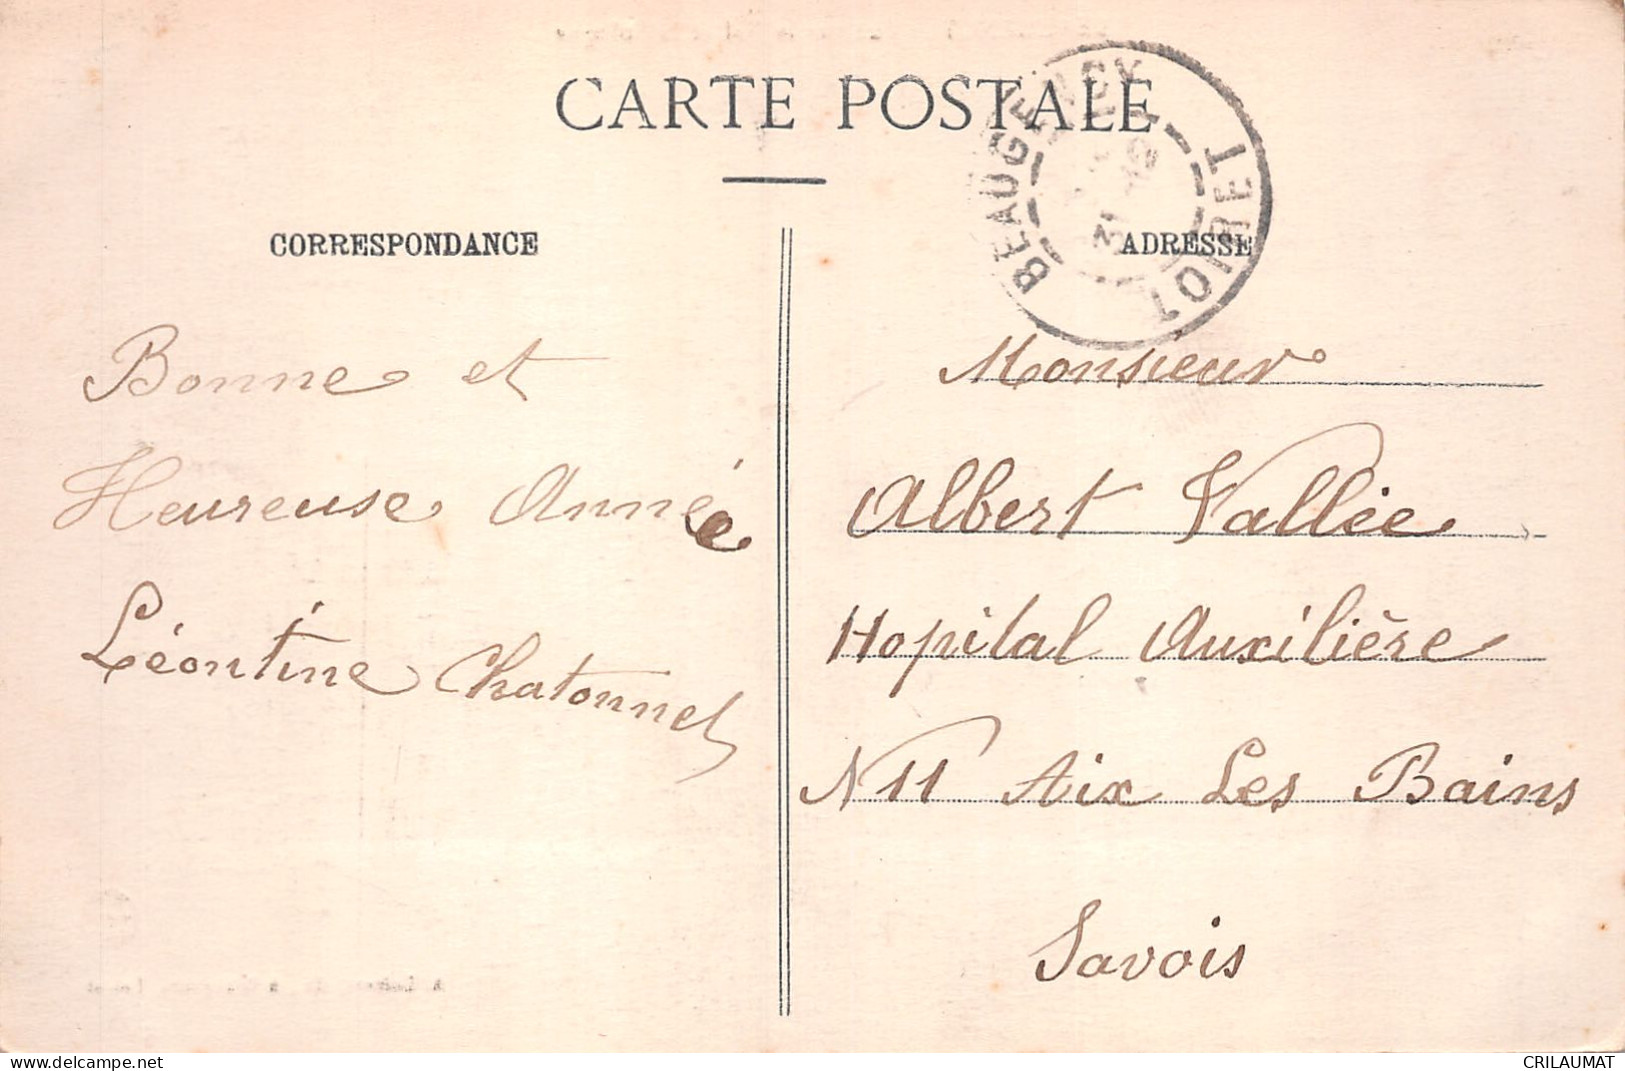 CARTE POSTALE
BEAUGENCY
LOIRET
31
CORRESPONDANCE
ADRESSE
Bonne et
Heureuse Année
Léontine Chatonnet
Monsieur
Albert Vallée
Hopital Auxilière
N 11 Aix Les Bains
Savois
www.delcampe.net
CRILAUMAT